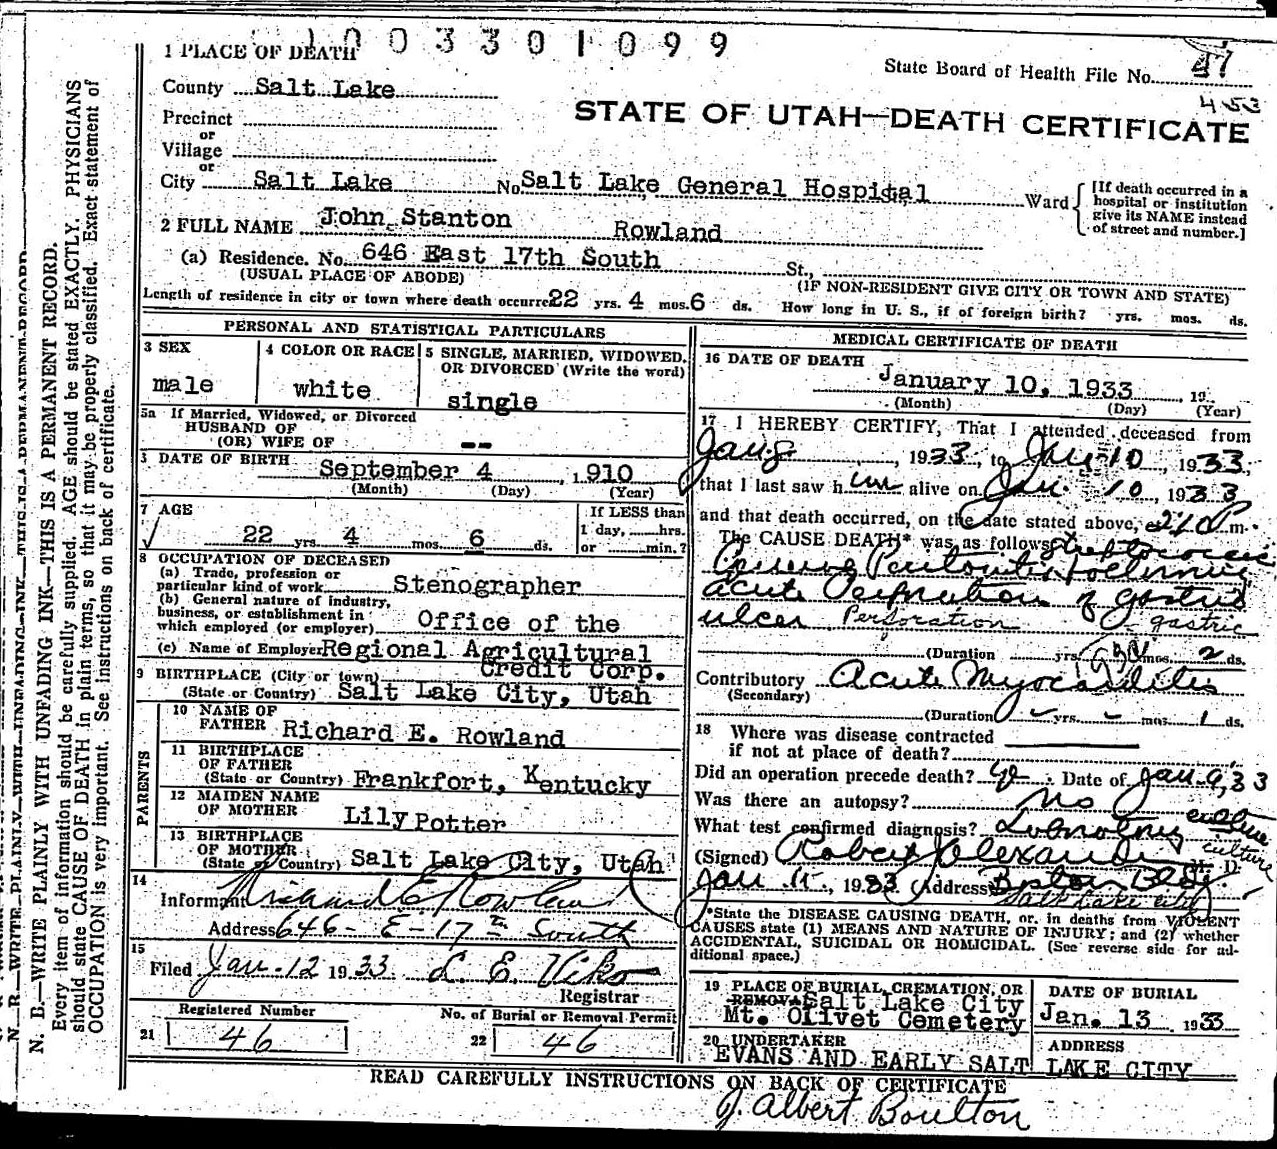 1003301099
1 PLACE OF DEATH
State Board of Health File No. 47
453
County Salt Lake
STATE OF UTAH—DEATH CERTIFICATE
Precinct
or
Village
or
City Salt Lake No. Salt Lake General Hospital Ward
[If death occurred in a hospital or institution give its NAME instead of street and number.]
2 FULL NAME John Stanton Rowland
(a) Residence. No. 646 East 17th South St.,
(USUAL PLACE OF ABODE) (IF NON-RESIDENT GIVE CITY OR TOWN AND STATE)
Length of residence in city or town where death occurred 22 yrs. 4 mos. 6 ds. How long in U. S., if of foreign birth? yrs. mos. ds.
PERSONAL AND STATISTICAL PARTICULARS
3 SEX
male
4 COLOR OR RACE
white
5 SINGLE, MARRIED, WIDOWED, OR DIVORCED (Write the word)
single
5a If Married, Widowed, or Divorced
HUSBAND OF
(OR) WIFE OF --
DATE OF BIRTH September 4, 1910
(Month) (Day) (Year)
7 AGE
22 yrs. 4 mos. 6 ds.
If LESS than
1 day, hrs.
or min.?
8 OCCUPATION OF DECEASED
(a) Trade, profession or
particular kind of work Stenographer
(b) General nature of industry,
business, or establishment in
which employed (or employer) Office of the
(c) Name of Employer Regional Agricultural
Credit Corp.
9 BIRTHPLACE (City or town)
(State or Country) Salt Lake City, Utah
PARENTS
10 NAME OF
FATHER Richard E. Rowland
11 BIRTHPLACE
OF FATHER
(State or Country) Frankfort, Kentucky
12 MAIDEN NAME
OF MOTHER Lily Potter
13 BIRTHPLACE
OF MOTHER
(State or Country) Salt Lake City, Utah
14
Informant Richard E Rowland
Address 646 - E - 17th South
15
Filed Jan. 12 1933 L. E. Viko
Registrar
Registered Number
21 46
No. of Burial or Removal Permit
22 46
MEDICAL CERTIFICATE OF DEATH
16 DATE OF DEATH
January 10, 1933, 19
(Month) (Day) (Year)
17 I HEREBY CERTIFY, That I attended deceased from
Jan. 8, 1933, to Jan 10, 1933,
that I last saw him alive on Jan. 10, 1933
and that death occurred, on the date stated above, at 210 P m.
The CAUSE DEATH* was as follows:
Causing Peritonitis
Acute Perforation of gastric
ulcer Perforation gastric
(Duration yrs. mos. 2 ds.
Contributory Acute Myocarditis
(Secondary)
(Duration - yrs. - mos. 1 ds.
18 Where was disease contracted
if not at place of death?
Did an operation precede death? Date of Jan. 9, 33
Was there an autopsy? No
What test confirmed diagnosis? Labratory culture
culture
(Signed) Robert Alexander M. D.
Jan 11, 1933 (Address) Boston Bldg.
Salt Lake City
*State the DISEASE CAUSING DEATH, or, in deaths from VIOLENT
CAUSES state (1) MEANS AND NATURE OF INJURY; and (2) whether
ACCIDENTAL, SUICIDAL OR HOMICIDAL. (See reverse side for additional space.)
19 PLACE OF BURIAL, CREMATION, OR
REMOVAL Salt Lake City
Mt. Olivet Cemetery
DATE OF BURIAL
Jan. 13 1933
20 UNDERTAKER
EVANS AND EARLY SALT
ADDRESS
LAKE CITY
READ CAREFULLY INSTRUCTIONS ON BACK OF CERTIFICATE
J. Albert Boulton
N. B.—WRITE PLAINLY WITH UNFADING INK—THIS IS A PERMANENT RECORD.
Every item of information should be carefully supplied. AGE should be stated EXACTLY. PHYSICIANS
should state CAUSE OF DEATH in plain terms, so that it may be properly classified. Exact statement of
OCCUPATION is very important. See instructions on back of certificate.